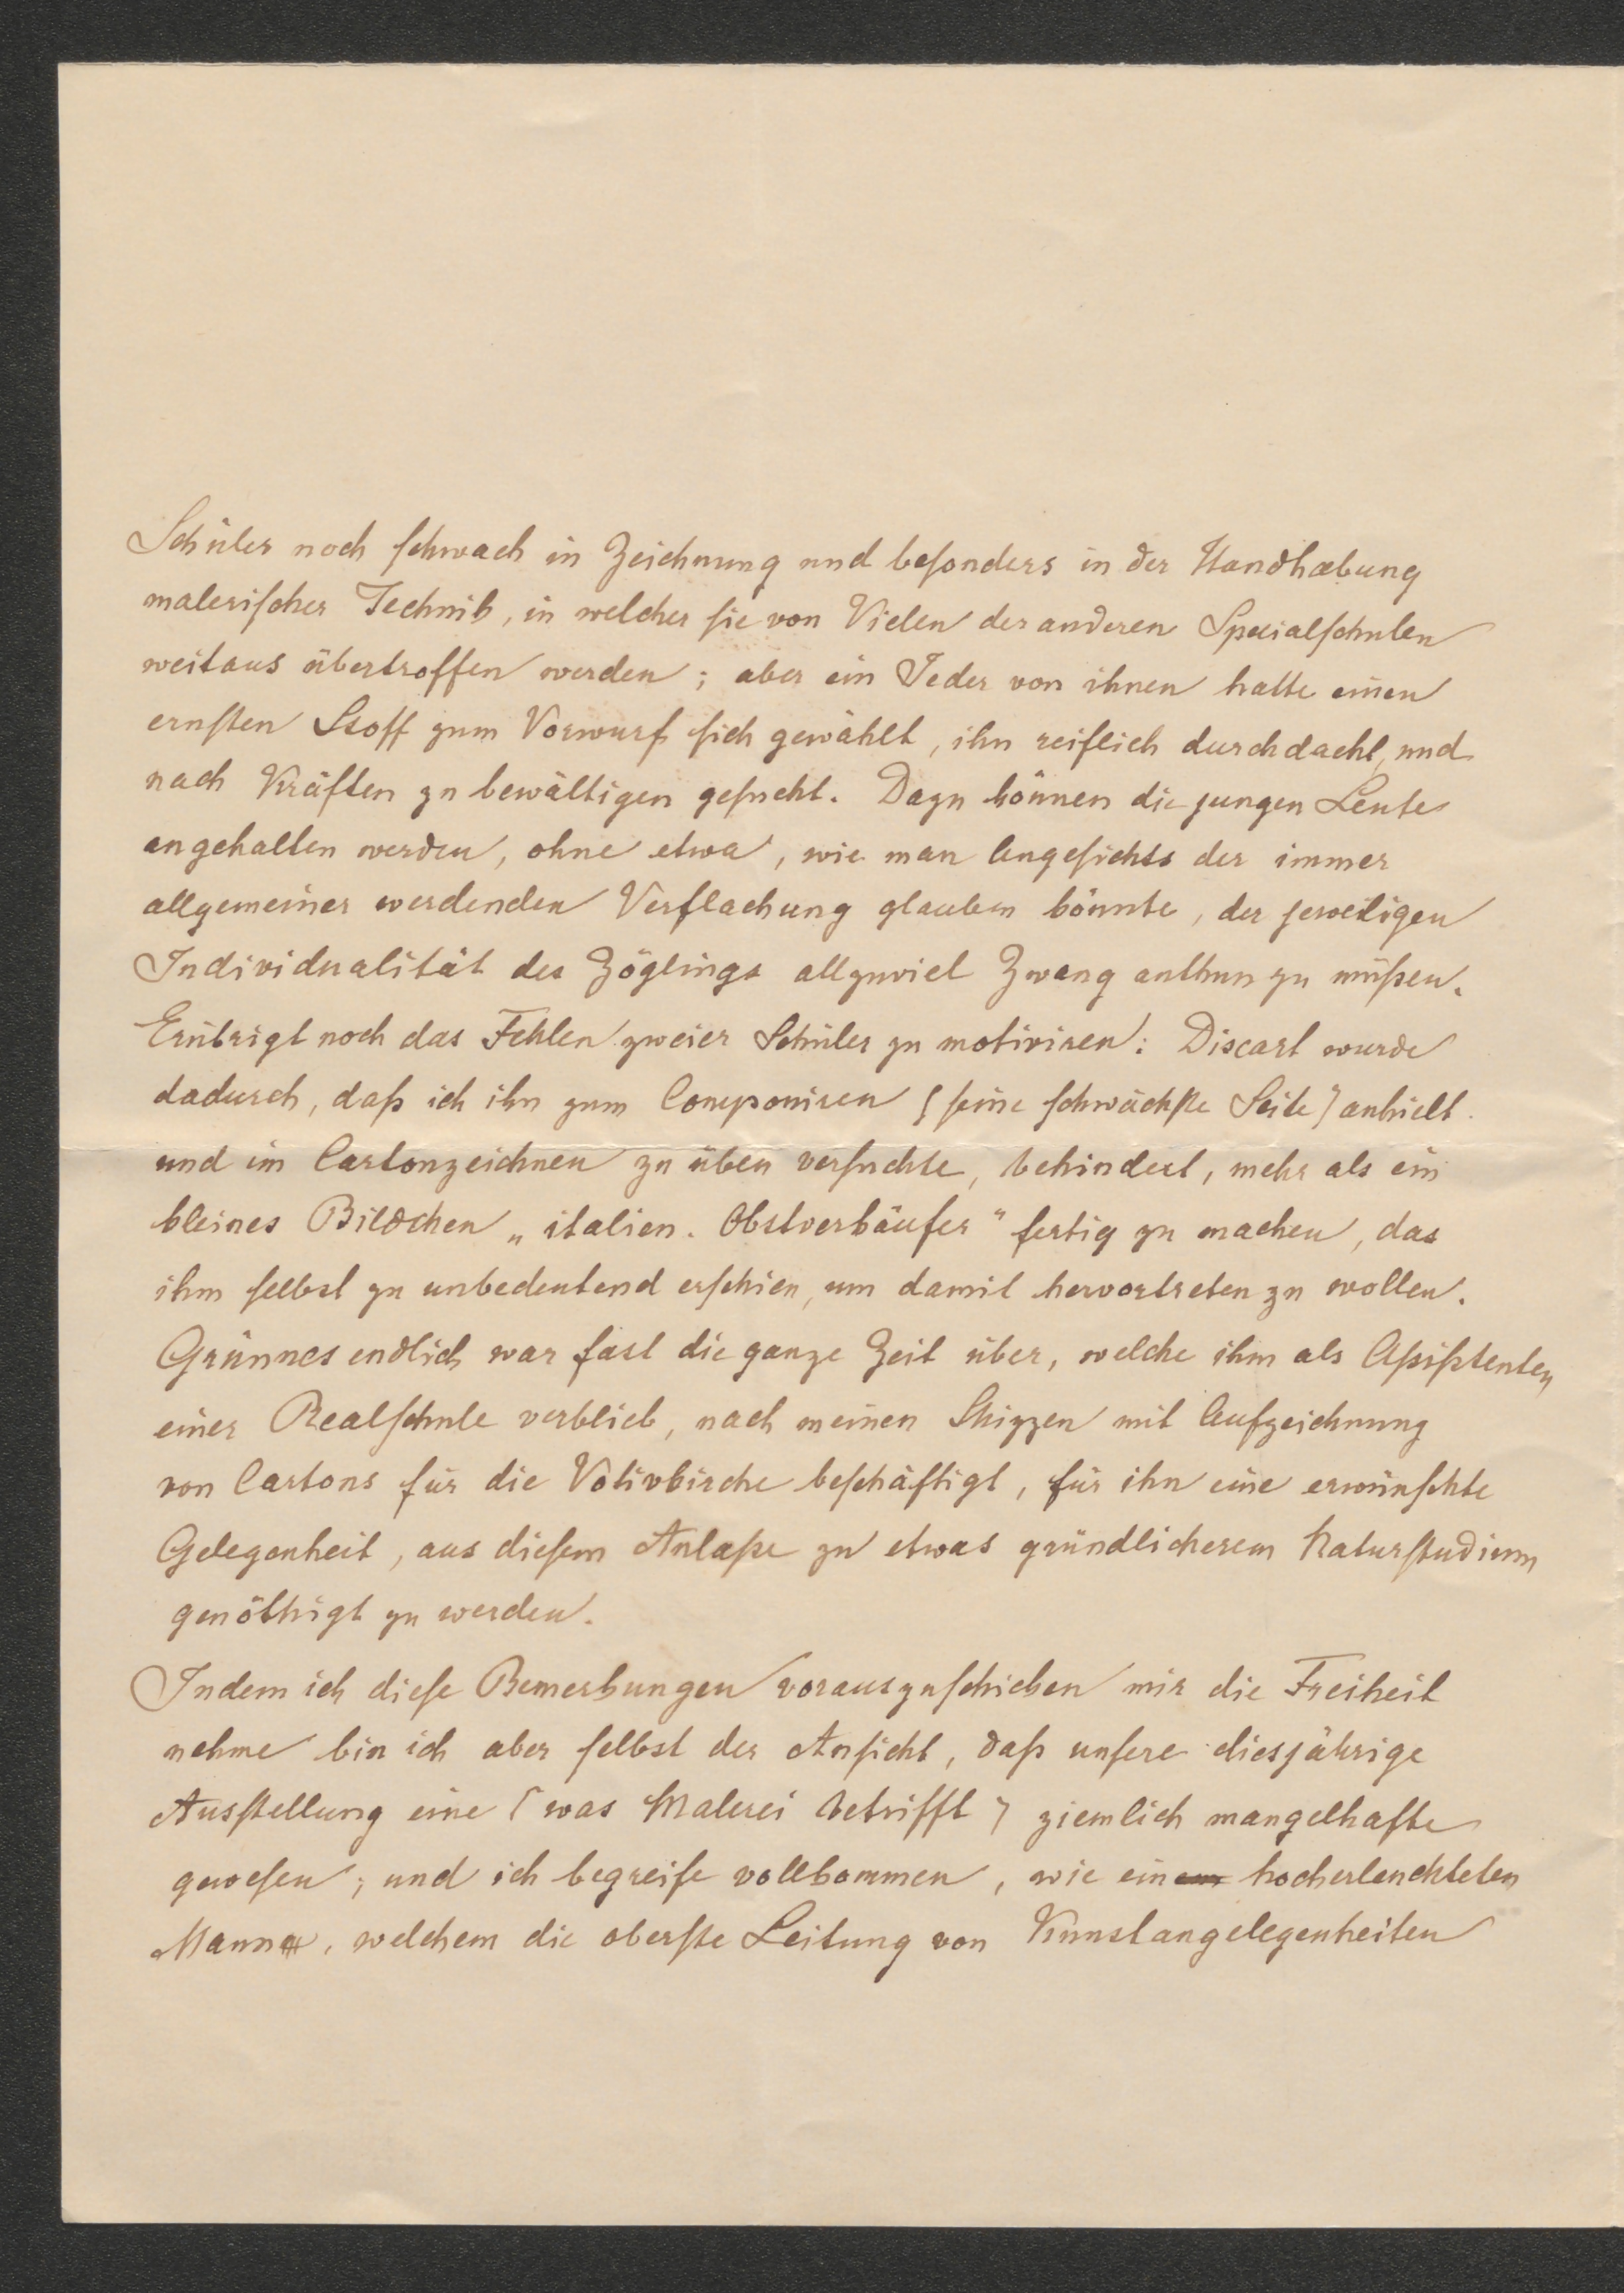 Schüler noch schwach in Zeichnung und besonders in der Handhabung
malerischer Technik, in welcher sie von Vielen der anderen Specialschulen
weitaus übertroffen werden; aber ein Jeder von ihnen hatte einen
ernsten Stoff zum Vorwurf sich gewählt, ihn reiflich durchdacht, und
nach Kräften zu bewältigen gesucht. Dazu können die jungen Leute
angehalten werden, ohne etwa, wie man Angesichts der immer
allgemeiner werdenden Verflachung glauben könnte, der jeweiligen
Individualität des Zöglings allzuviel Zwang anthun zu müßen.
Erübrigt noch das Fehlen zweier Schüler zu motiviren: Discart wurde
dadurch, daß ich ihn zum Componiren (seine schwächste Seite) anhielt
und im Cartonzeichnen zu üben versuchte, behindert, mehr als ein
kleines Bildchen „italien. Obstverkäufer" fertig zu machen, das
ihm selbst zu unbedeutend erschien, um damit hervortreten zu wollen.
Grünnes endlich war fast die ganze Zeit über, welche ihm als Aßistenten
einer Realschule verblieb, nach meinen Skizzen mit Aufzeichnung
von Cartons für die Votivkirche beschäftigt, für ihn eine erwünschte
Gelegenheit, aus diesem Anlaße zu etwas gründlicherem Naturstudium
genöthigt zu werden.
Indem ich diese Bemerkungen vorauszuschicken mir die Freiheit
nehme bin ich aber selbst der Ansicht, daß unsere diesjährige
Ausstellung eine (was Malerei betrifft) ziemlich mangelhafte
gewesen; und ich begreife vollkommen, wie ein hocherleuchteten
Mann, welchem die oberste Leitung von Kunstangelegenheiten